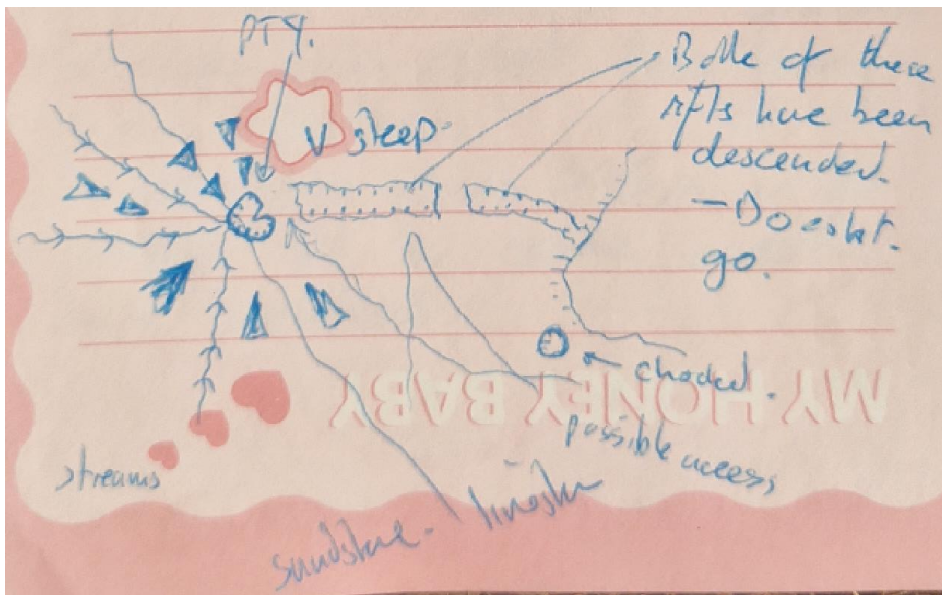 PTY.
V steep.
Both of these
rifts have been
descended.
- Doesn't.
go.
choked.
possible access
MY HONEY BABY
streams
sandstone - limestone